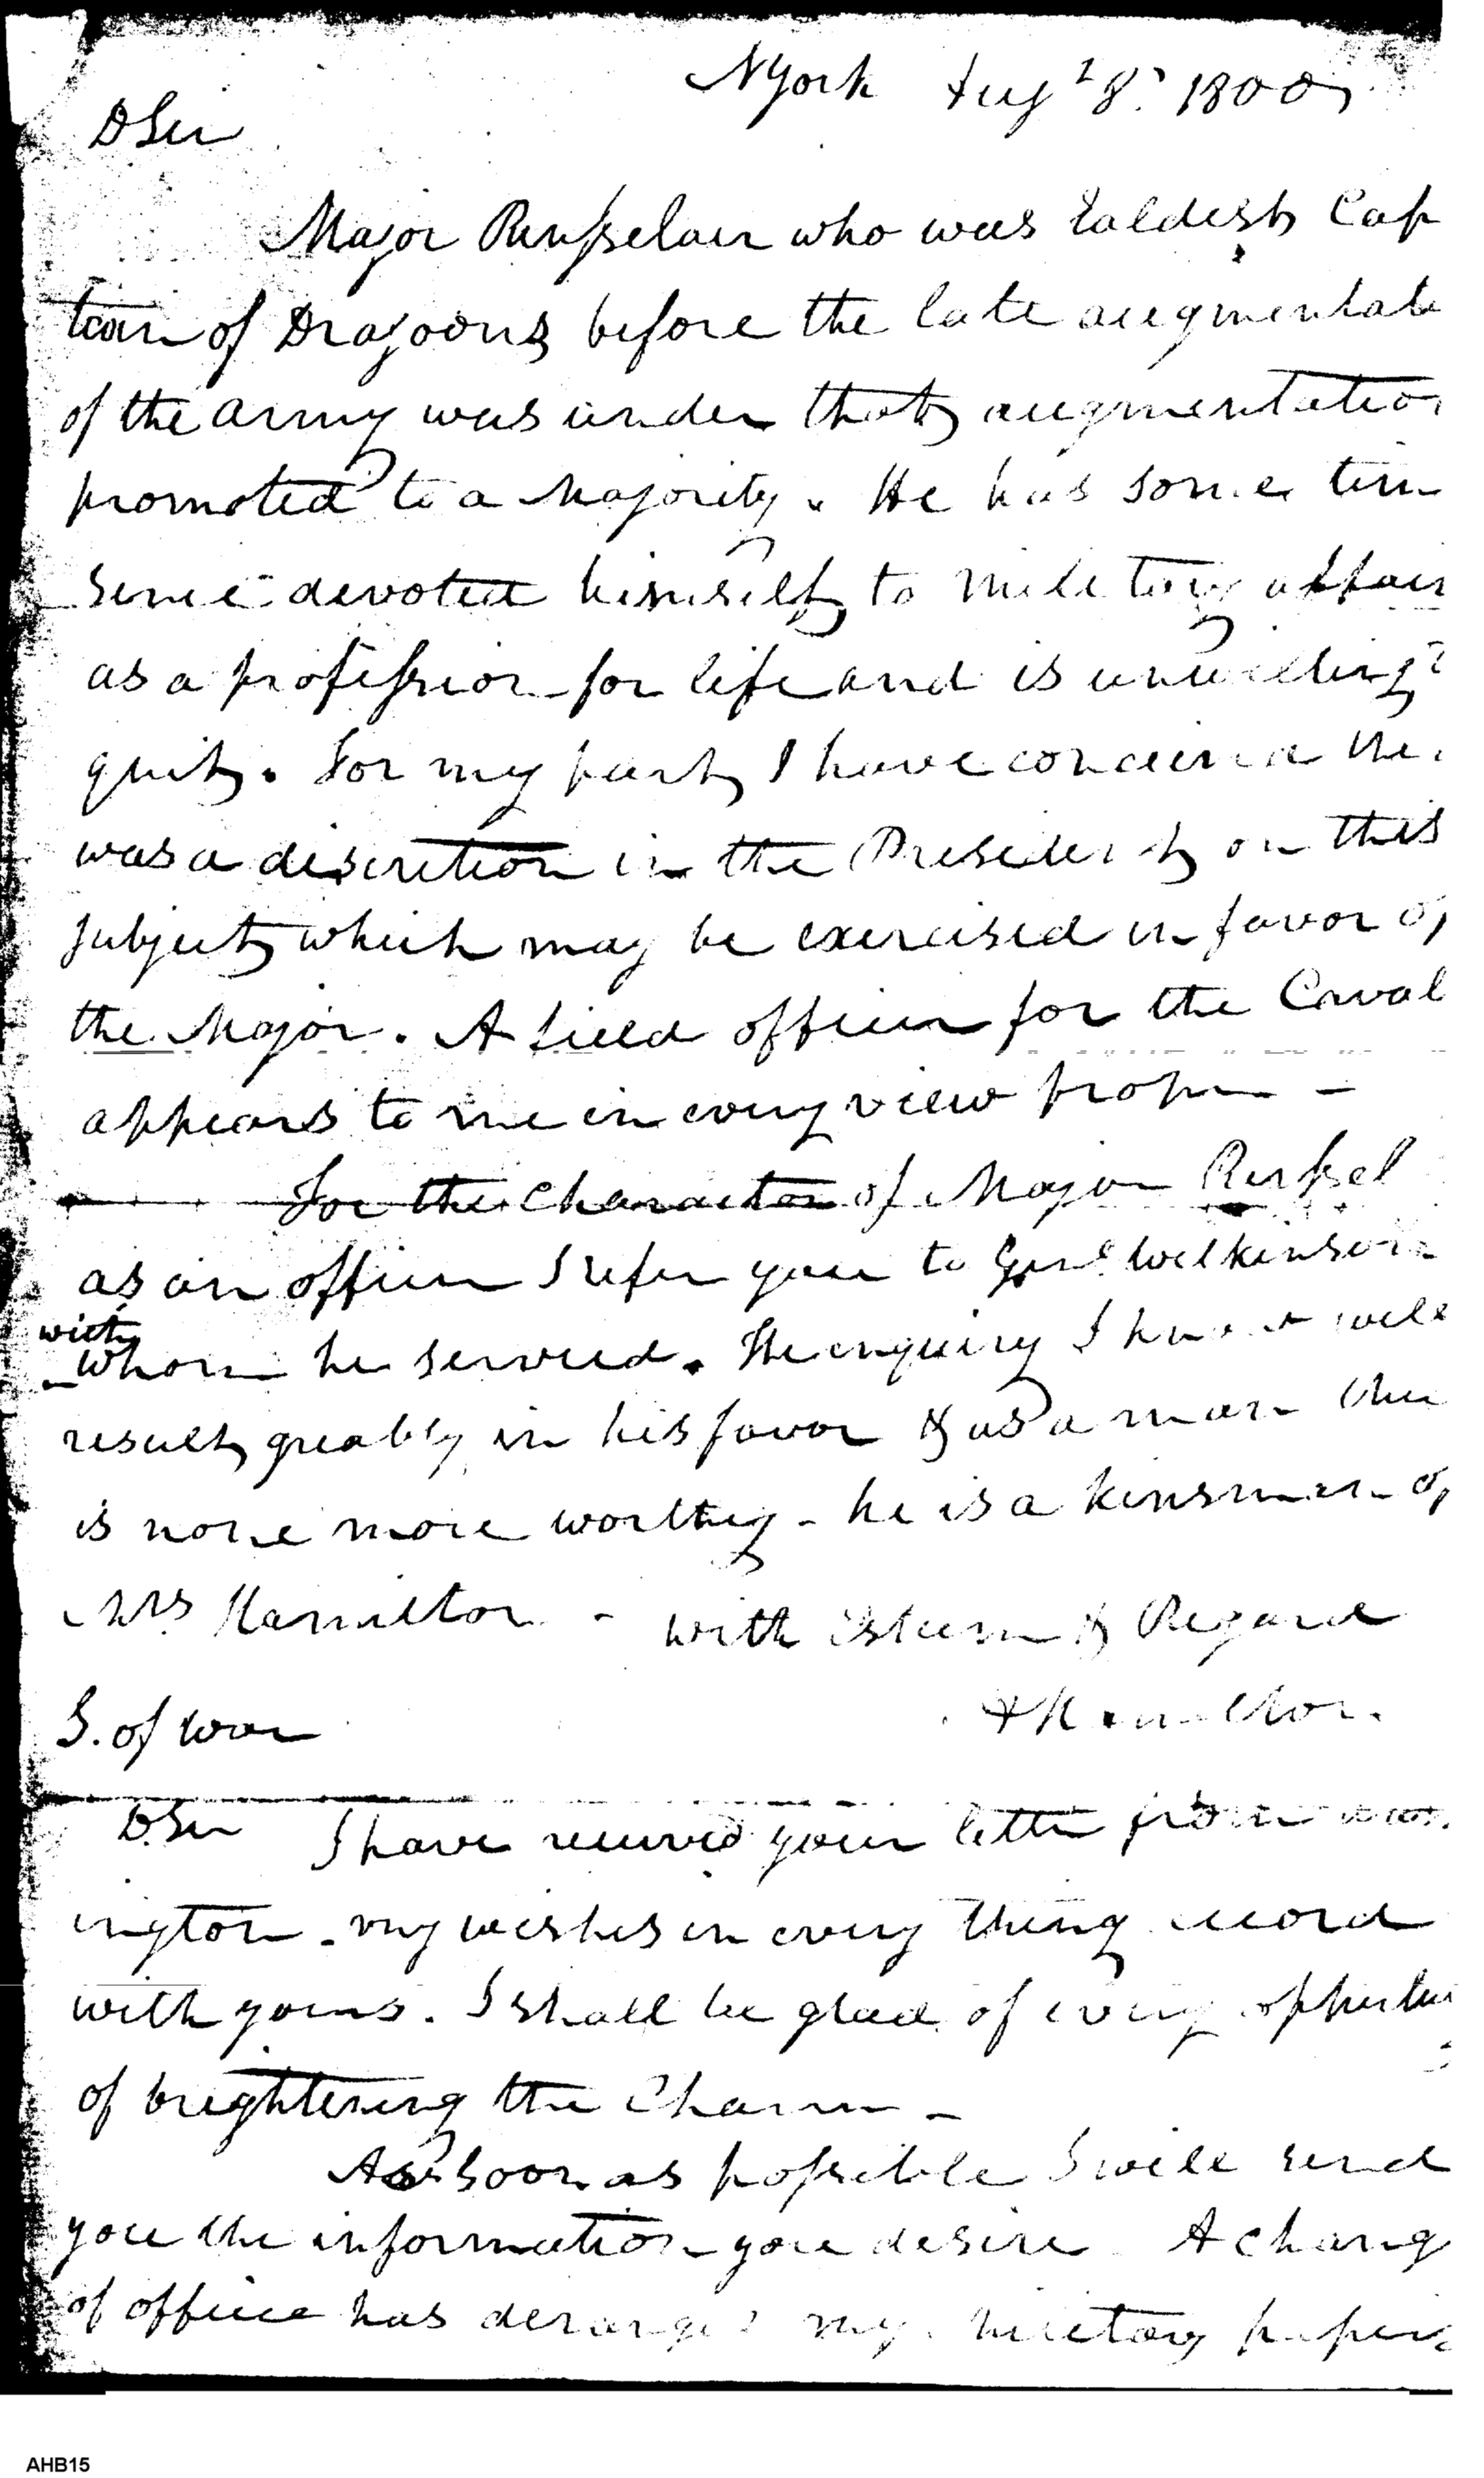 NYork Augt 8. 1800
D Sir
Major Rensselaer who was Ealdest Cap
tain of Dragoons before the late augmentati
of the army was under that augmentation
promoted to a Majority. He has some tim
sence devoted himself to military affair
as a profession for life and is unwilling
quit. For my part I have conceived the
was a discretion in the President on this
subject which may be exercised in favor of
the Major. A field officer for the Caval
appears to me in every view proper -
For the Character of Major Rensel
as an officer I refer you to Genl Wilkinson
with
whom he served. The enquiry I know will
result greatly in his favor & as a man ther
is none more worthy - he is a kinsman of
Mrs Hamilton - with esteem & Regard
S. of War
A Hamilton.
D. Sir I have received your letter from
ington - my wishes in every thing accord
with yours. I shall be glad of every opportu
of brightening the Chain -
As soon as possible I will send
you the information you desire A chang
of office has deranged my military papers
AHB15